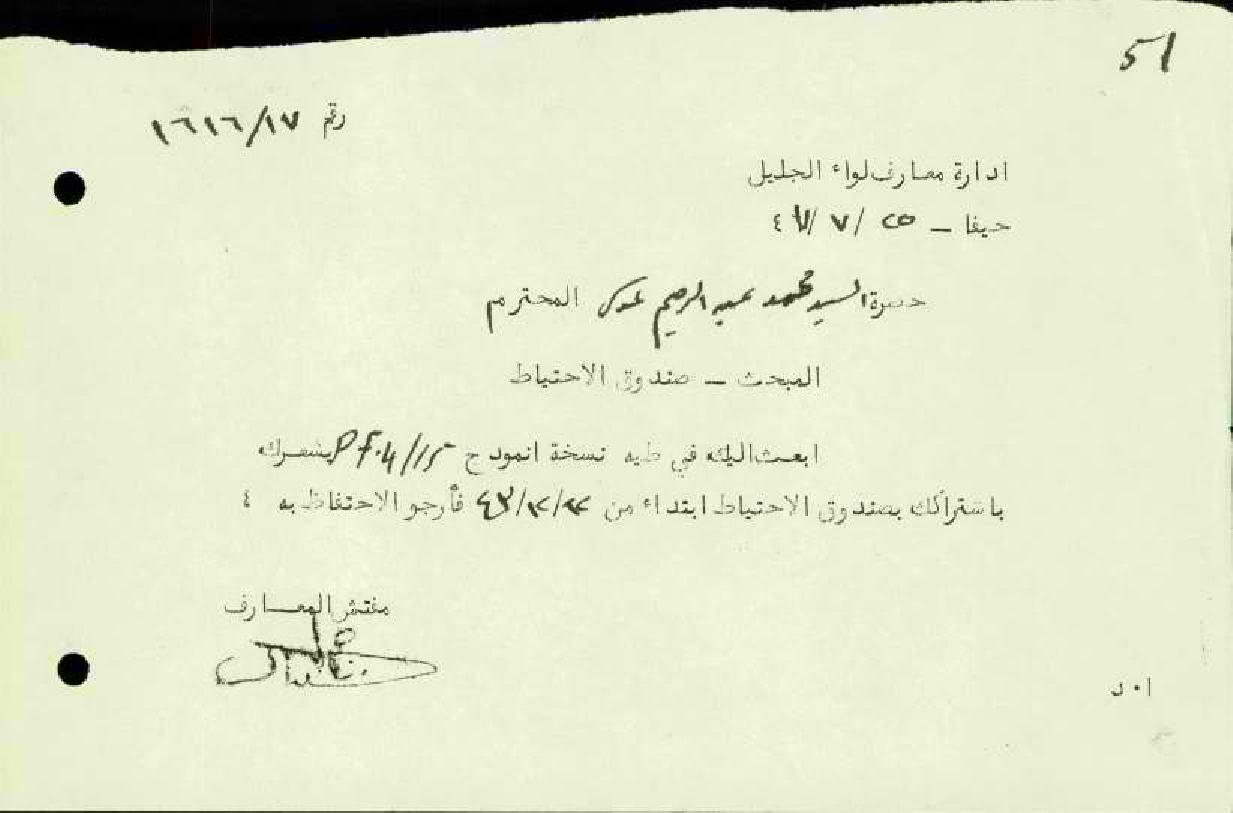 51
رقم ١٦١٦/١٧
ادارة معارف لواء الجليل
حيفا – ٢٥ / ٧ /
حضرة السيد محمد عبد الرحيم المحترم
المبحث – صندوق الاحتياط
ابعث اليك في طيه نسخة انموذج يشعرك
باشتراكك بصندوق الاحتياط ابتداء من فأرجو الاحتفاظ به
مفتش المعارف
ا٠د